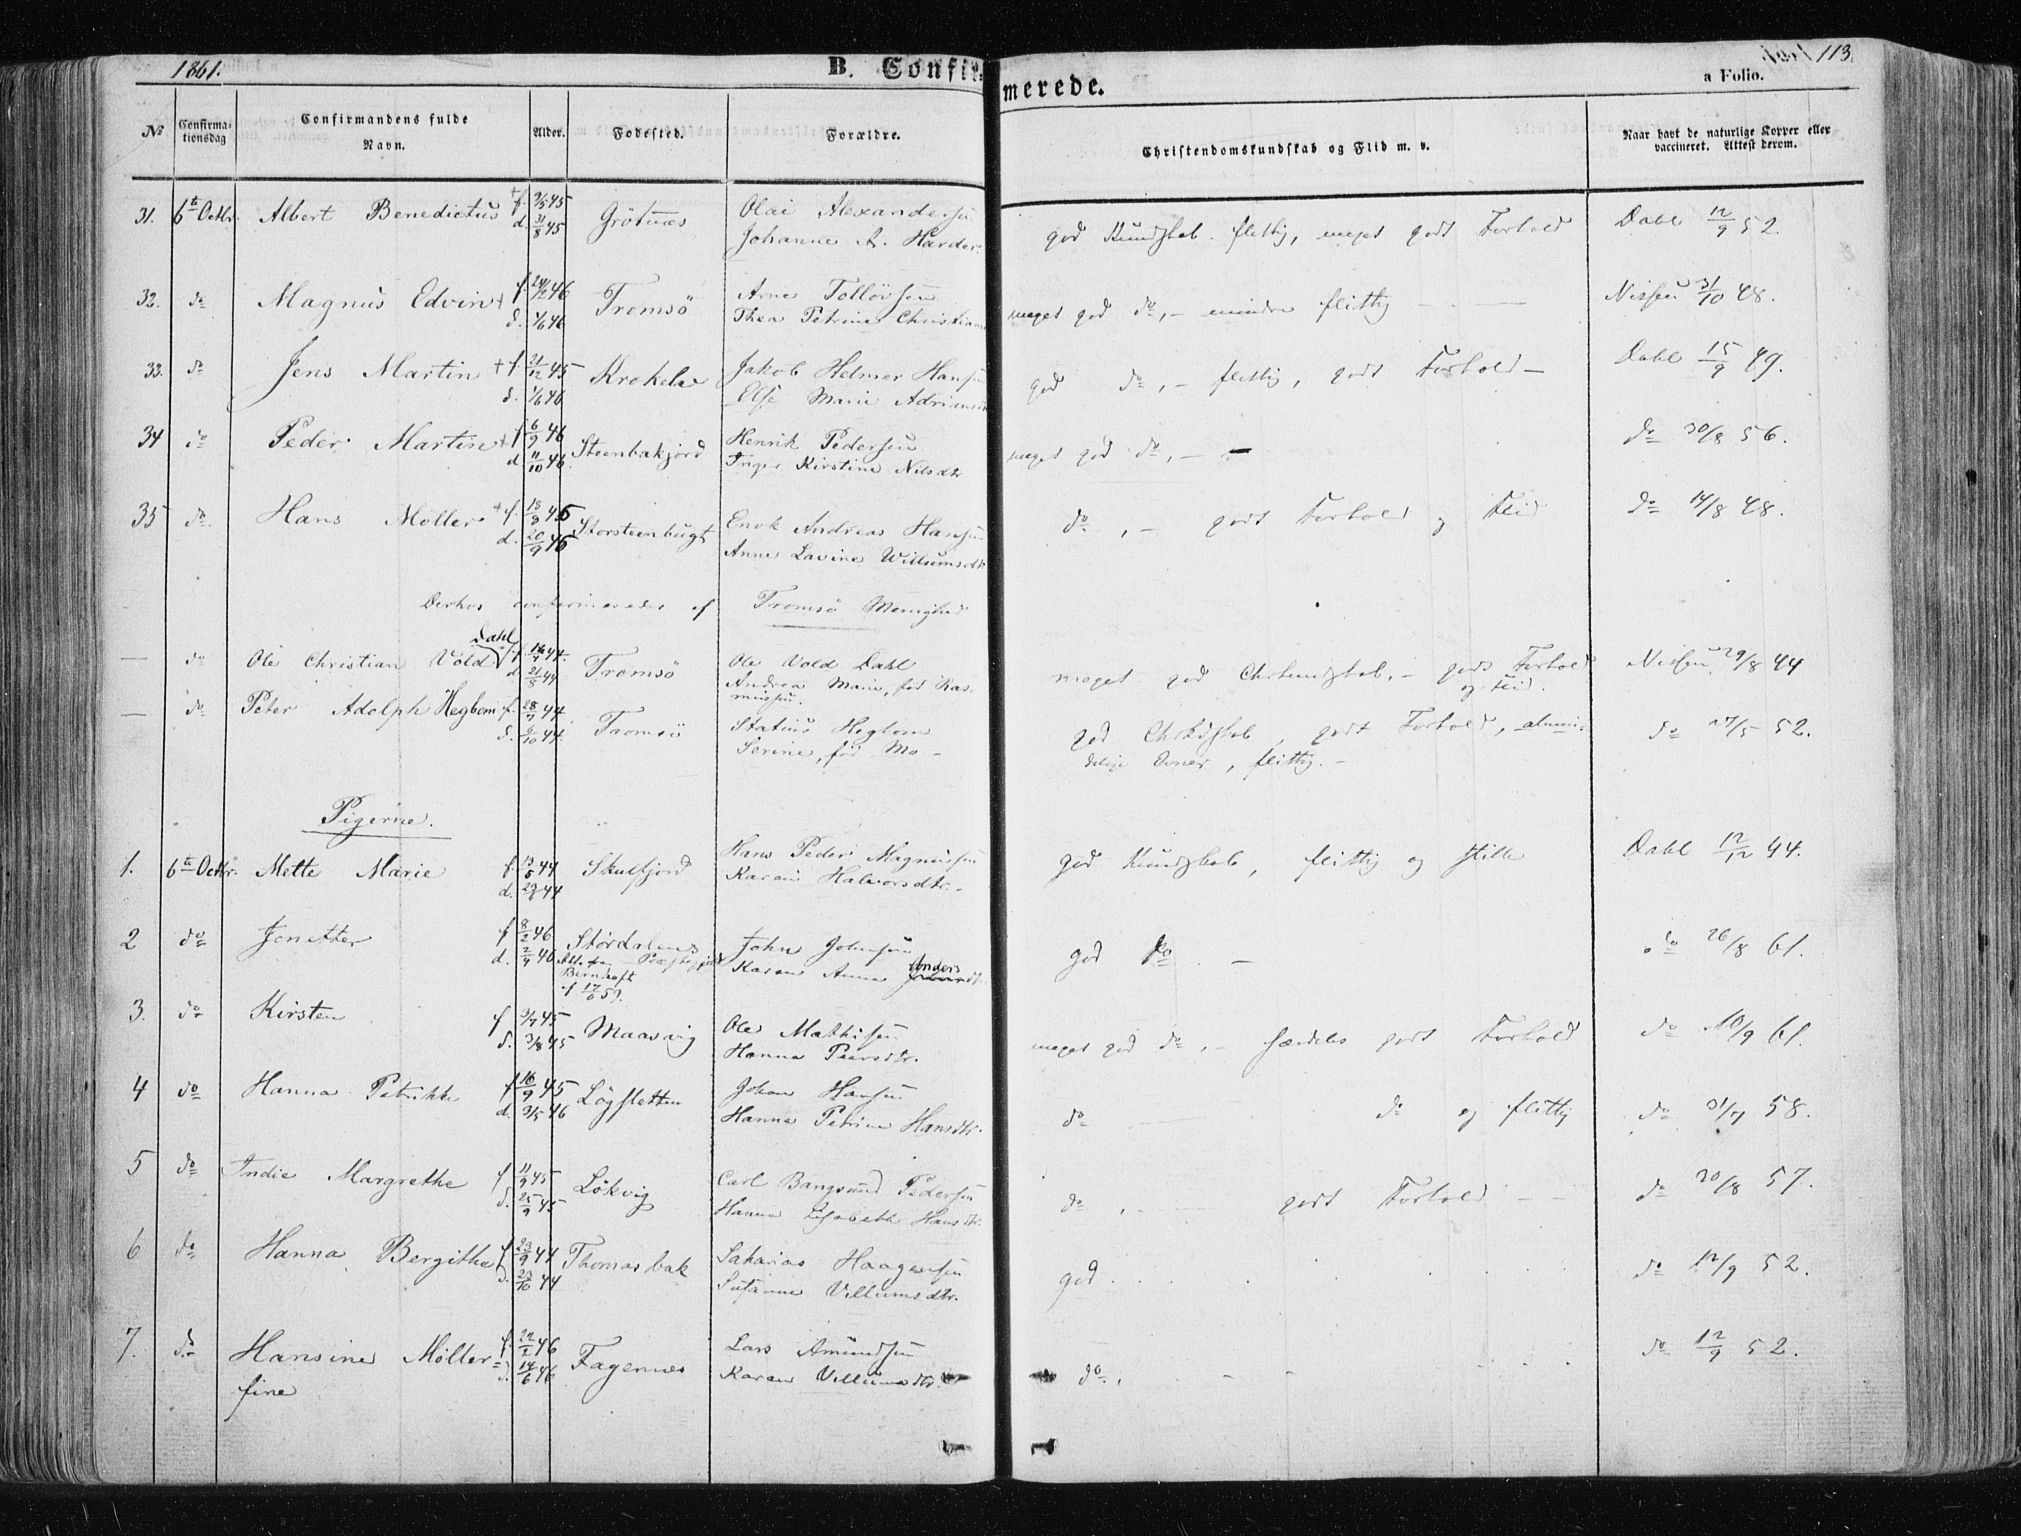 1861.
B. Confirmerede.
113.
a Folio.
No
Confirmationsdag
Confirmandens fulde Navn.
Alder.
Fødested.
Forældre.
Christendomskundskab og Flid m. v.
Naar havt de naturlige Kopper eller vaccineret. Attest derom.
31. 6te Octbr. Albert Benedictus + f. 9/5 45 Grötnæs Olai Alexandersen god Kundskab. flittig, meget godt Forhold Dahl 12/9 52.
d. 31/8 45 Johanne A. Harder.
32. do Magnus Edvin + f. 24/2 46 Tromsö Arne Tolløvsen meget god do, - mindre flittig Nissen 31/10 48.
d. 1/6 46 Thea Petrine Christians
33. do Jens Martin + f. 21/12 45 Krokelv Jakob Helmer Hansen god do, - flittig, godt Forhold - Dahl 15/9 49.
d. 1/6 46 Else Marie Adriansd
34 do Peder Martin + f. 6/9 46 Steenbakjord Henrik Pedersen meget god do, - - do 30/8 56.
d. 11/10 46 Inger Kirstine Nilsdtr
35 do Hans Møller + f. 13/9 45 Storsteenbugt Enok Andreas Hansen do, - godt Forhold og Flid do 14/8 48.
d. 20/9 45 Anne Lavine Willumsdtr
Derhos confirmeredes af Tromsö Menighed
— do Ole Christian Vold Dahl f. 16/7 44. Tromsö Ole Vold Dahl meget god Chrkundskab, - godt Forhold og Flid. Nissen 29/8 44
d. 21/8 44 Andrea Marie, fød Rasmussen.
— do Peter Adolph Hegbom f. 28/7 44. Tromsö Statius Hegbom god Chrkdskab, godt Forhold, almindelige Evner, flittig. - do 17/5 52.
d. 6/10 44. Serine, fød Mo -
Pigerne.
1. 6te Octbr. Mette Marie f. 13/5 44 Skulfjord Hans Peder Magnussen god Kundskab, flittig og stille Dahl 12/12 44.
d. 29/6 44 Karen Halvorsdtr. -
2 do Jonetta f. 8/2 46 Størdalens John Johnsen god do. - do 26/8 61.
d. 2/4 46 Att. fra Præstegjeld Karen Anna Andersdtr.
Bernhoft
af 17/6 59.
3. do Kirsten f. 3/7 45 Maasvig Ole Mathisen meget god do, - særdeles godt Forhold do 10/9 61.
d. 3/8 45 Hanna Peersdtr.
4 do Hanna Petrikke f. 16/9 45 Løgsletten Johan Hansen do do og flittig do 31/7 58.
d. 3/5 46 Hanna Petrine Hansdtr.
5 do Indie Margrethe f. 11/9 45 Lökvig Carl Bangsund Pedersen do, - godt Forhold - - do 30/8 57.
d. 25/9 45 Hanna Elisabeth Hansdtr.
6 do Hanna Bergithe f. 23/9 44 Thomasbak Sakarias Haagensen god. do 12/9 52.
d. 29/10 44 Susanne Villumsdtr.
7. do Hansine Møller= f. 22/2 46 Fagernæs Lars Amundsen do. - - do 12/9 52.
fine d. 14/6 46 Karen Villumsdtr.